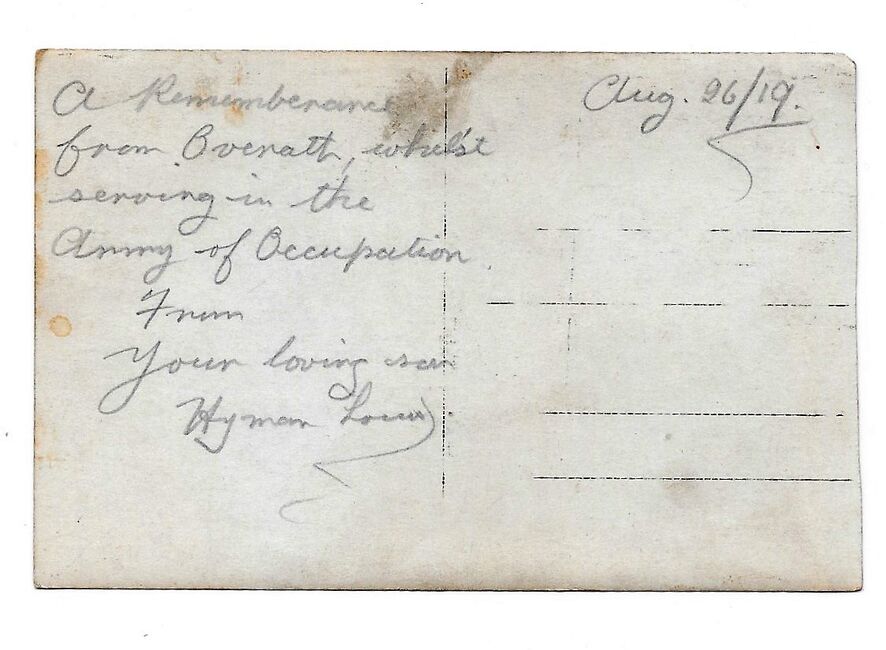 A Rememberance
from Overath, whilst
serving in the
Army of Occupation
From
Your loving son
Hyman
Aug. 26/19.